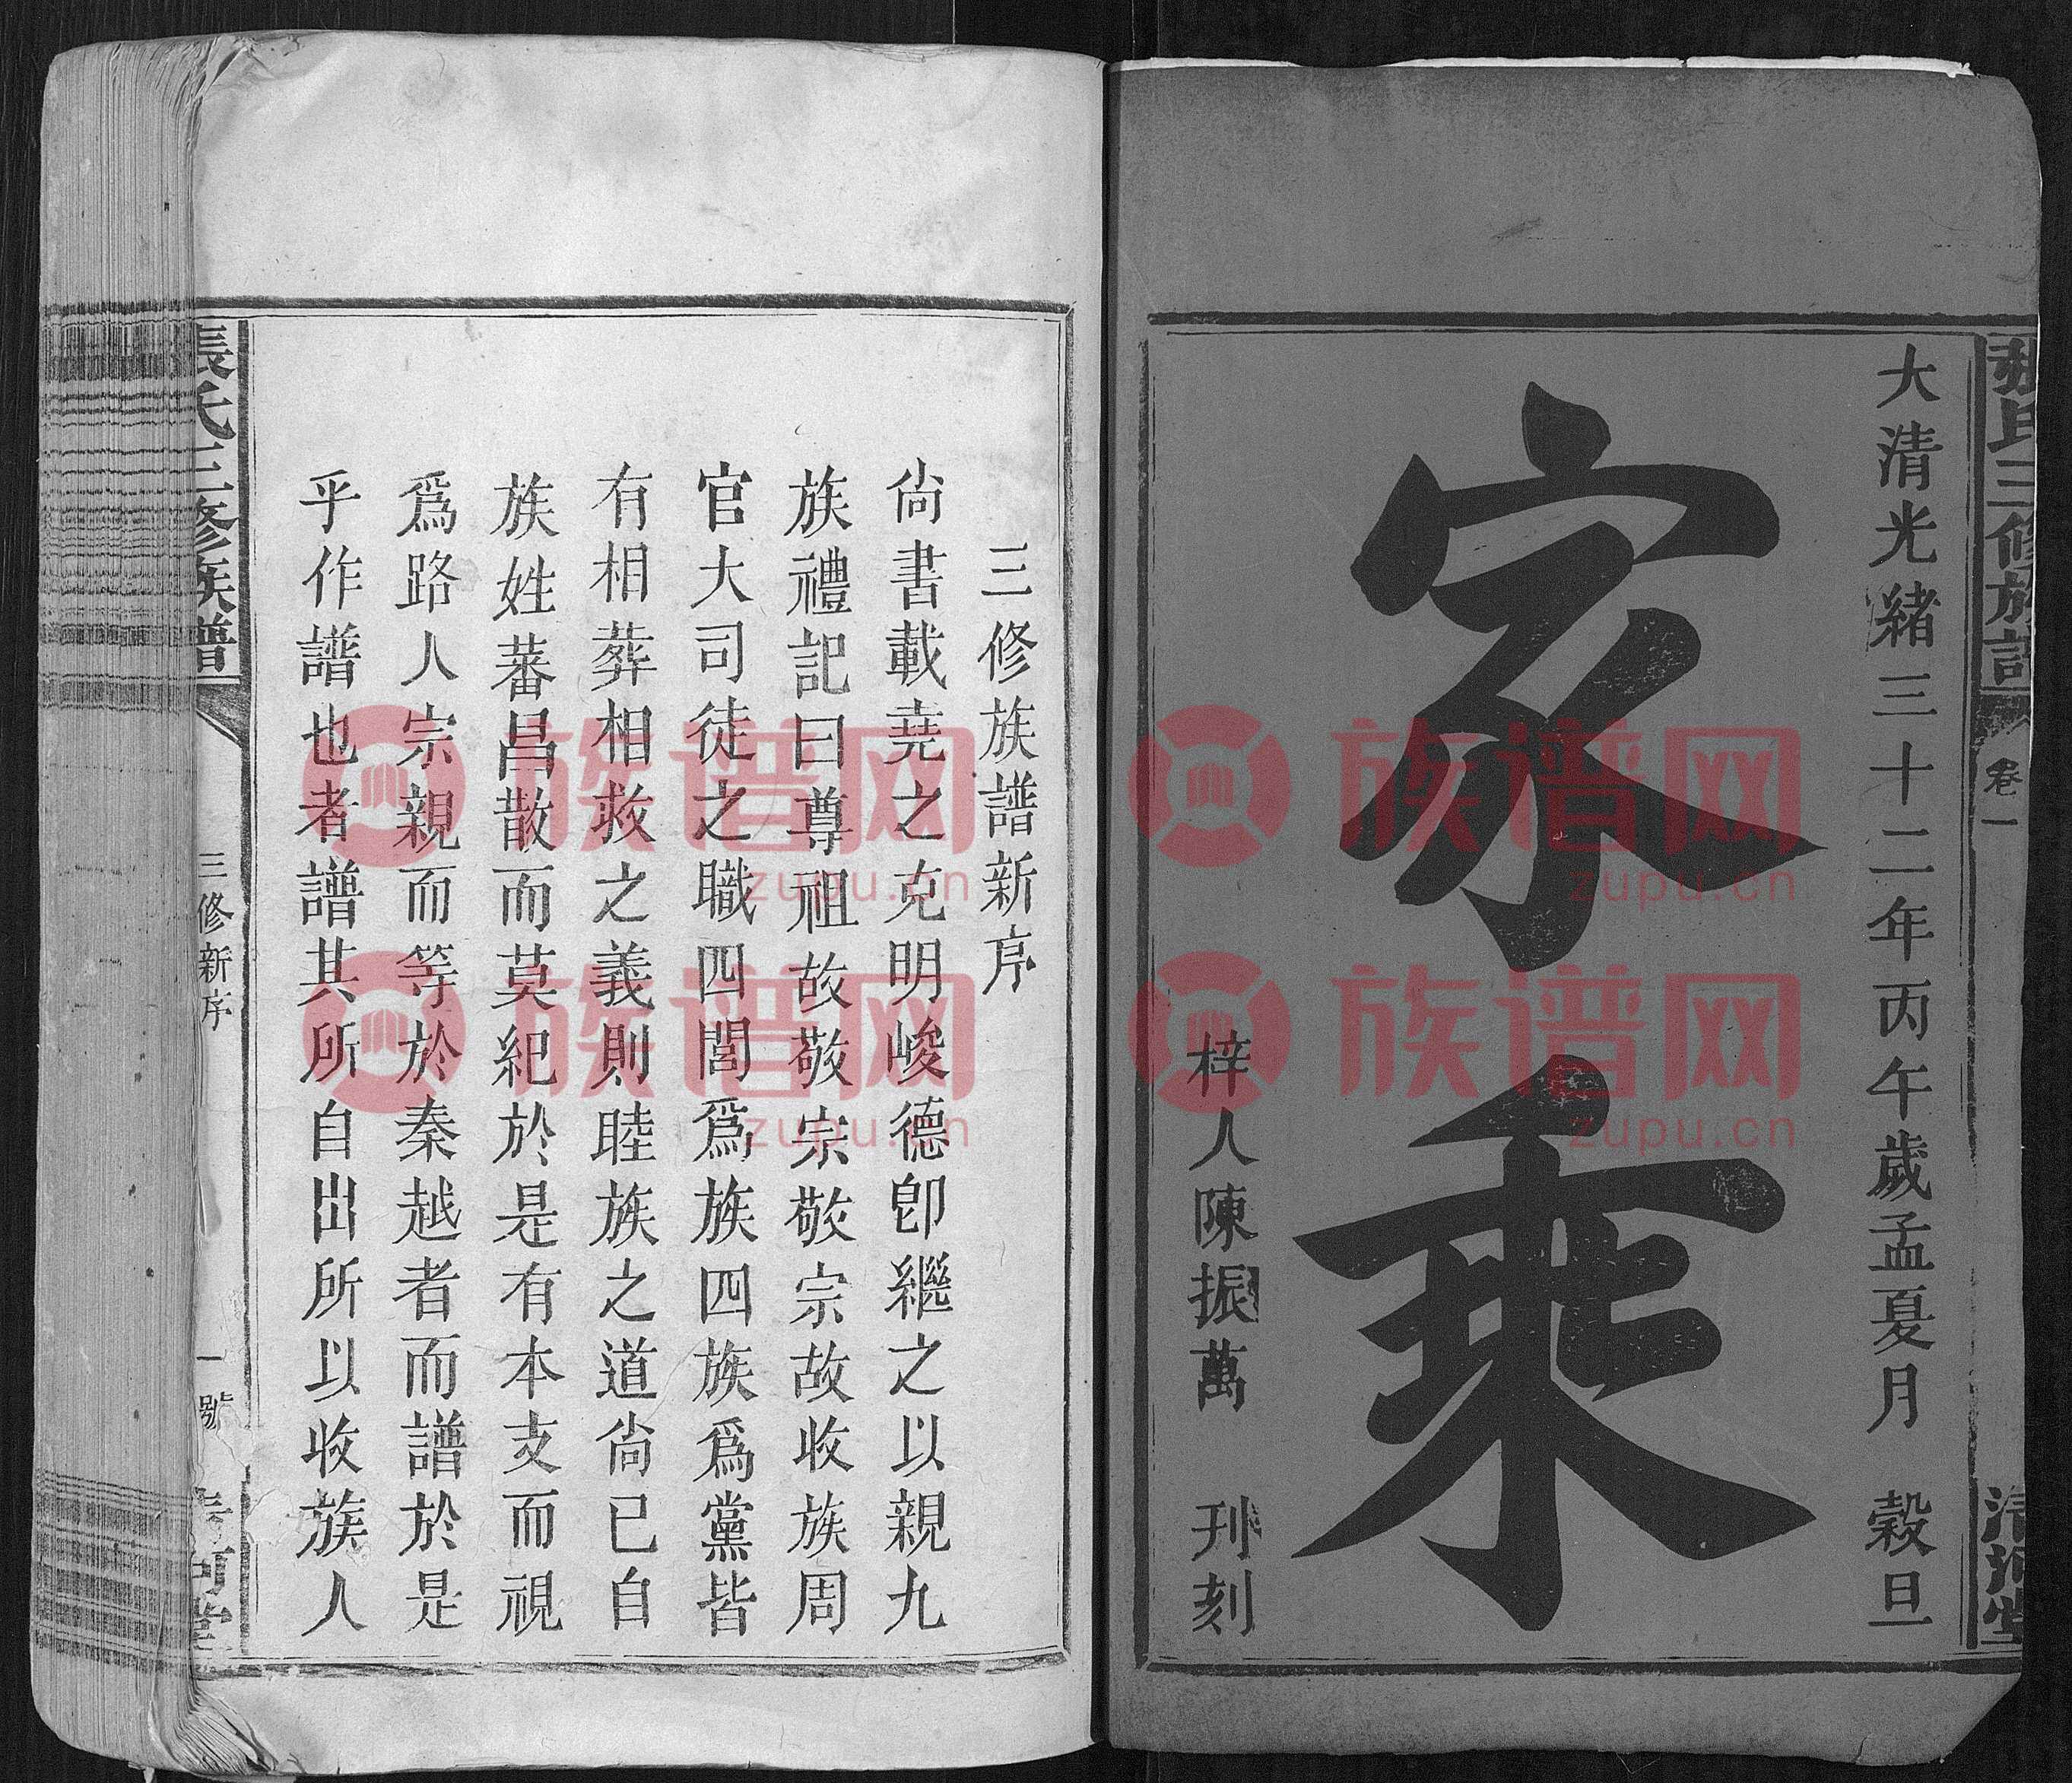 張氏三修族譜
卷一
清河堂
大清光緒三十二年丙午歲孟夏月 穀旦
家乘
梓人陳振萬 刊刻
三修族譜新序
尙書載堯之克明峻德卽繼之以親九
族禮記曰尊祖故敬宗敬宗故收族周
官大司徒之職四閭爲族四族爲黨皆
有相葬相救之義則睦族之道尙已自
族姓蕃昌散而莫紀於是有本支而視
爲路人宗親而等於秦越者而譜於是
乎作譜也者譜其所自出所以收族人
張氏三修族譜
三修新序
一號
清河堂
族谱网
zupu.cn
族谱网
zupu.cn
族谱网
zupu.cn
族谱网
zupu.cn